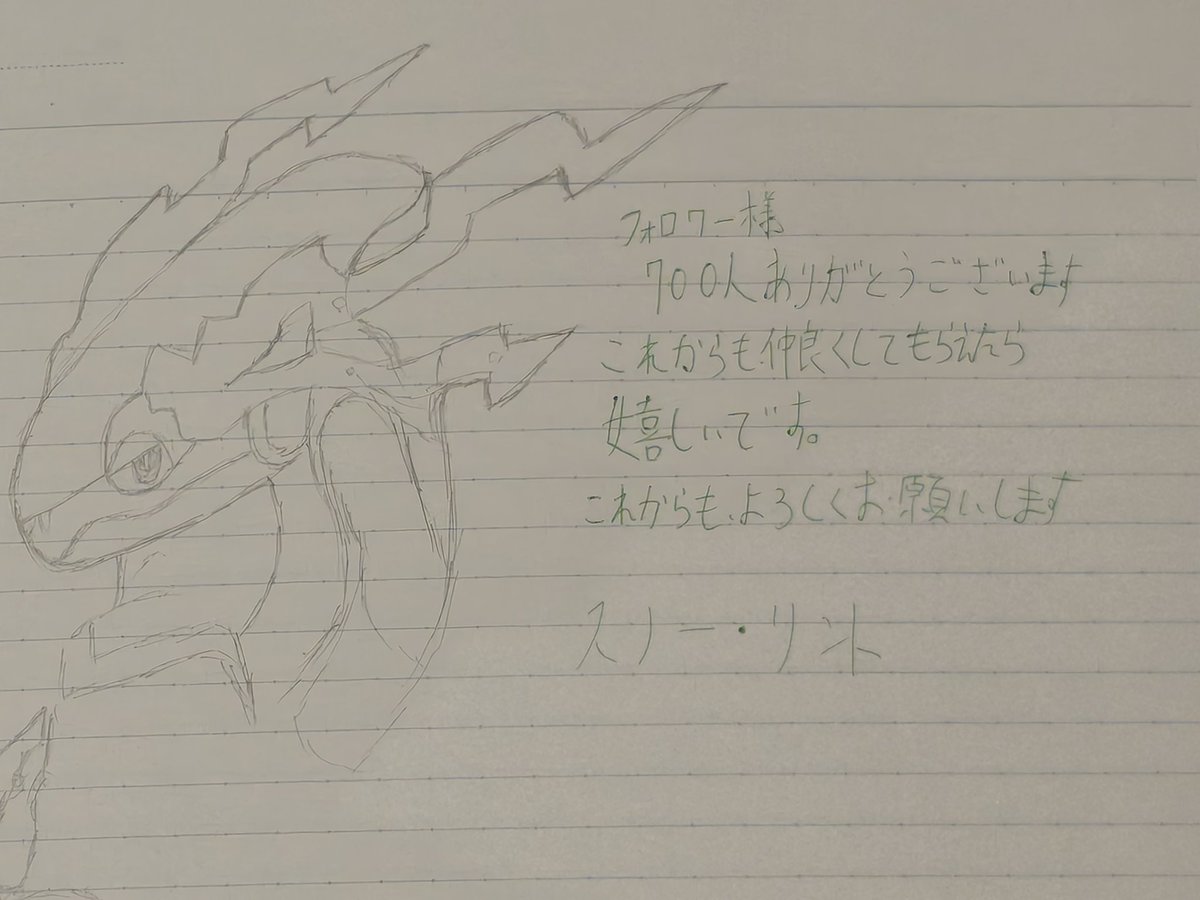 フォロワー様
700人ありがとうございます
これからも仲良くしてもらえたら
嬉しいです。
これからも、よろしくお願いします
スノー・リント